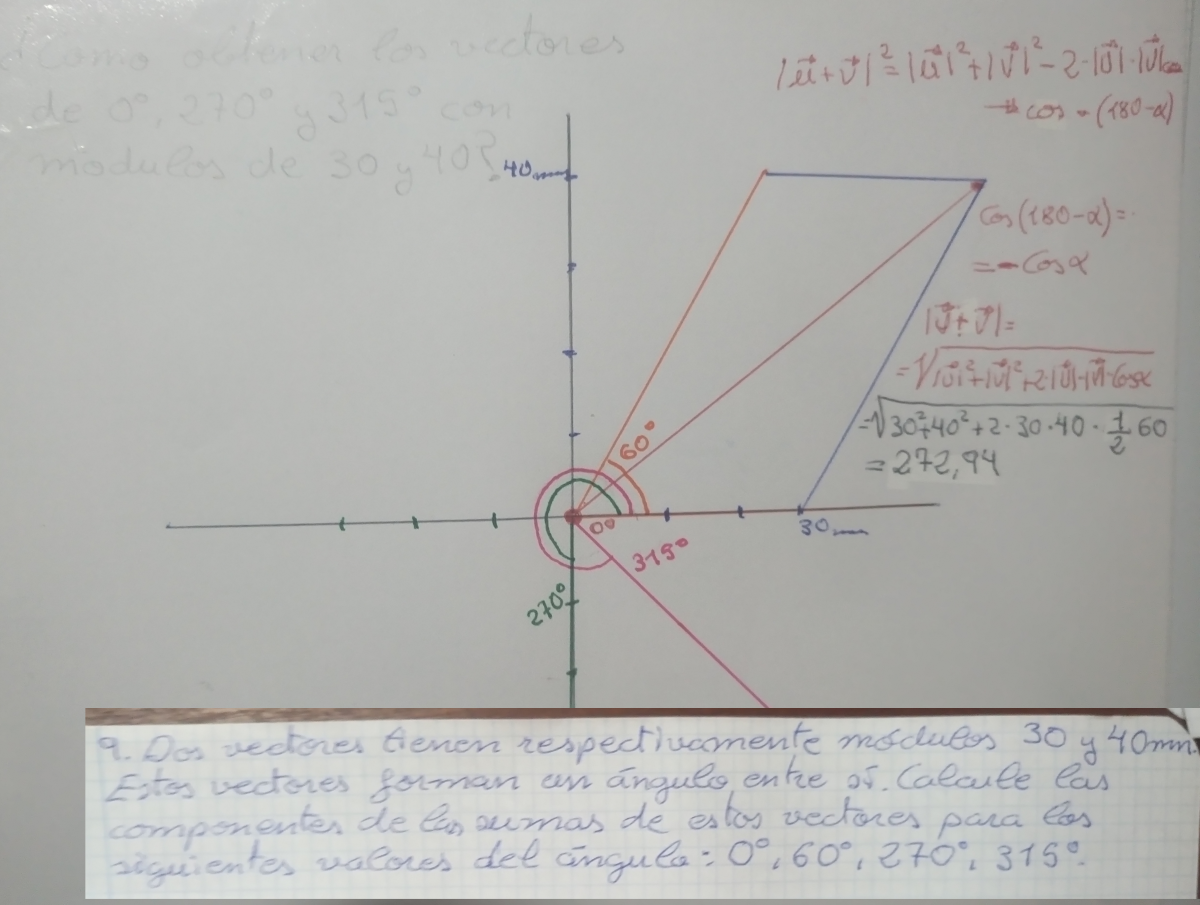 ¿Cómo obtener los vectores
de 0°, 270° y 315° con
modulos de 30 y 40?
|u⃗+v⃗|²=|u⃗|²+|v⃗|²-2·|u⃗|·|v⃗|cos
→ cos · (180-α)
40mm
cos(180-α)=
=-cosα
|u⃗+v⃗|=
=√|u⃗|²+|v⃗|²+2·|u⃗|·|v⃗|·cosα
=√30²+40²+2·30·40·1/2 60
=272,94
60°
0°
30mm
315°
270°
9. Dos vectores tienen respectivamente módulos 30 y 40mm.
Estos vectores forman un ángulo entre sí. Calcule las
componentes de las sumas de estos vectores para los
siguientes valores del ángulo: 0°, 60°, 270°, 315°.